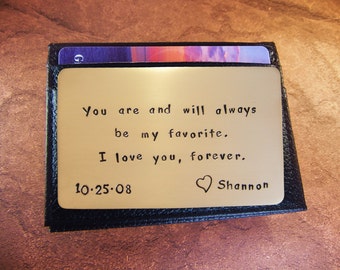 G
You are and will always
be my favorite.
I love you, forever.
10-25-08 ♡ Shannon